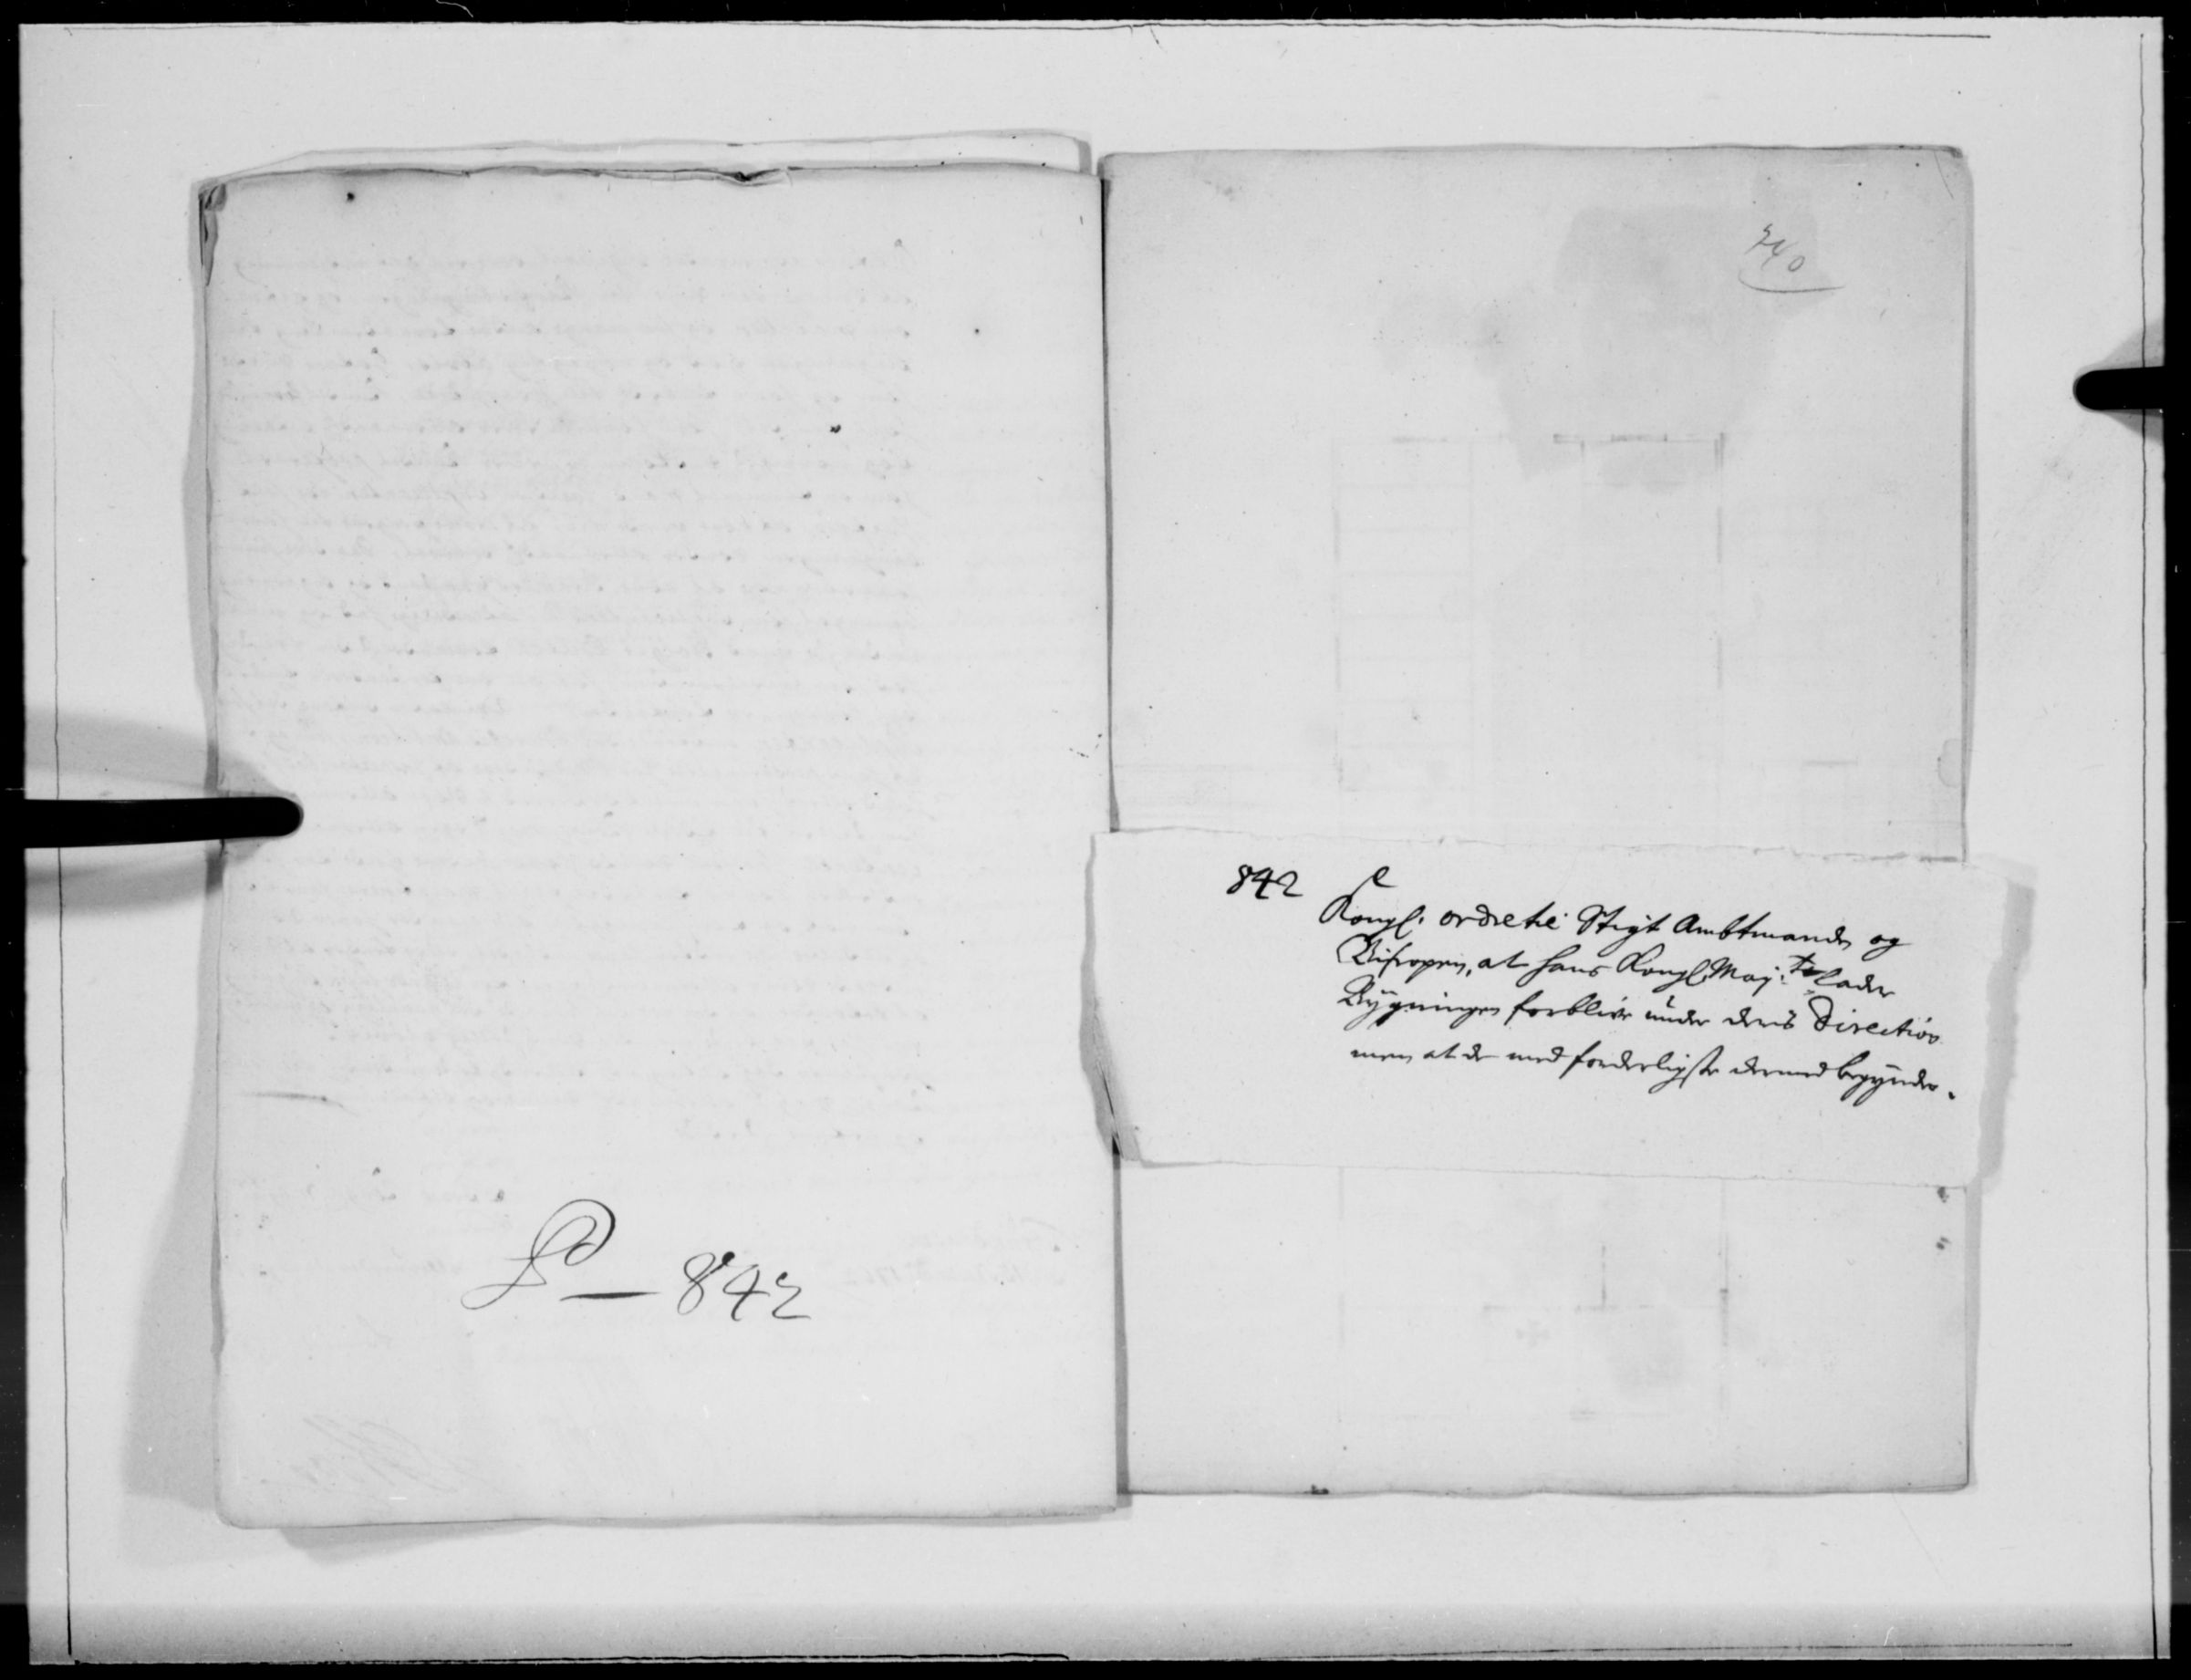 740
842 Kongl. ordre til Stigt Ambtmanden og
Bispopen, at hans Kongl. Maj:ts lader
Bygningen forblive under deris Direction
men at de med forderligste dermed begynder.
P — 842